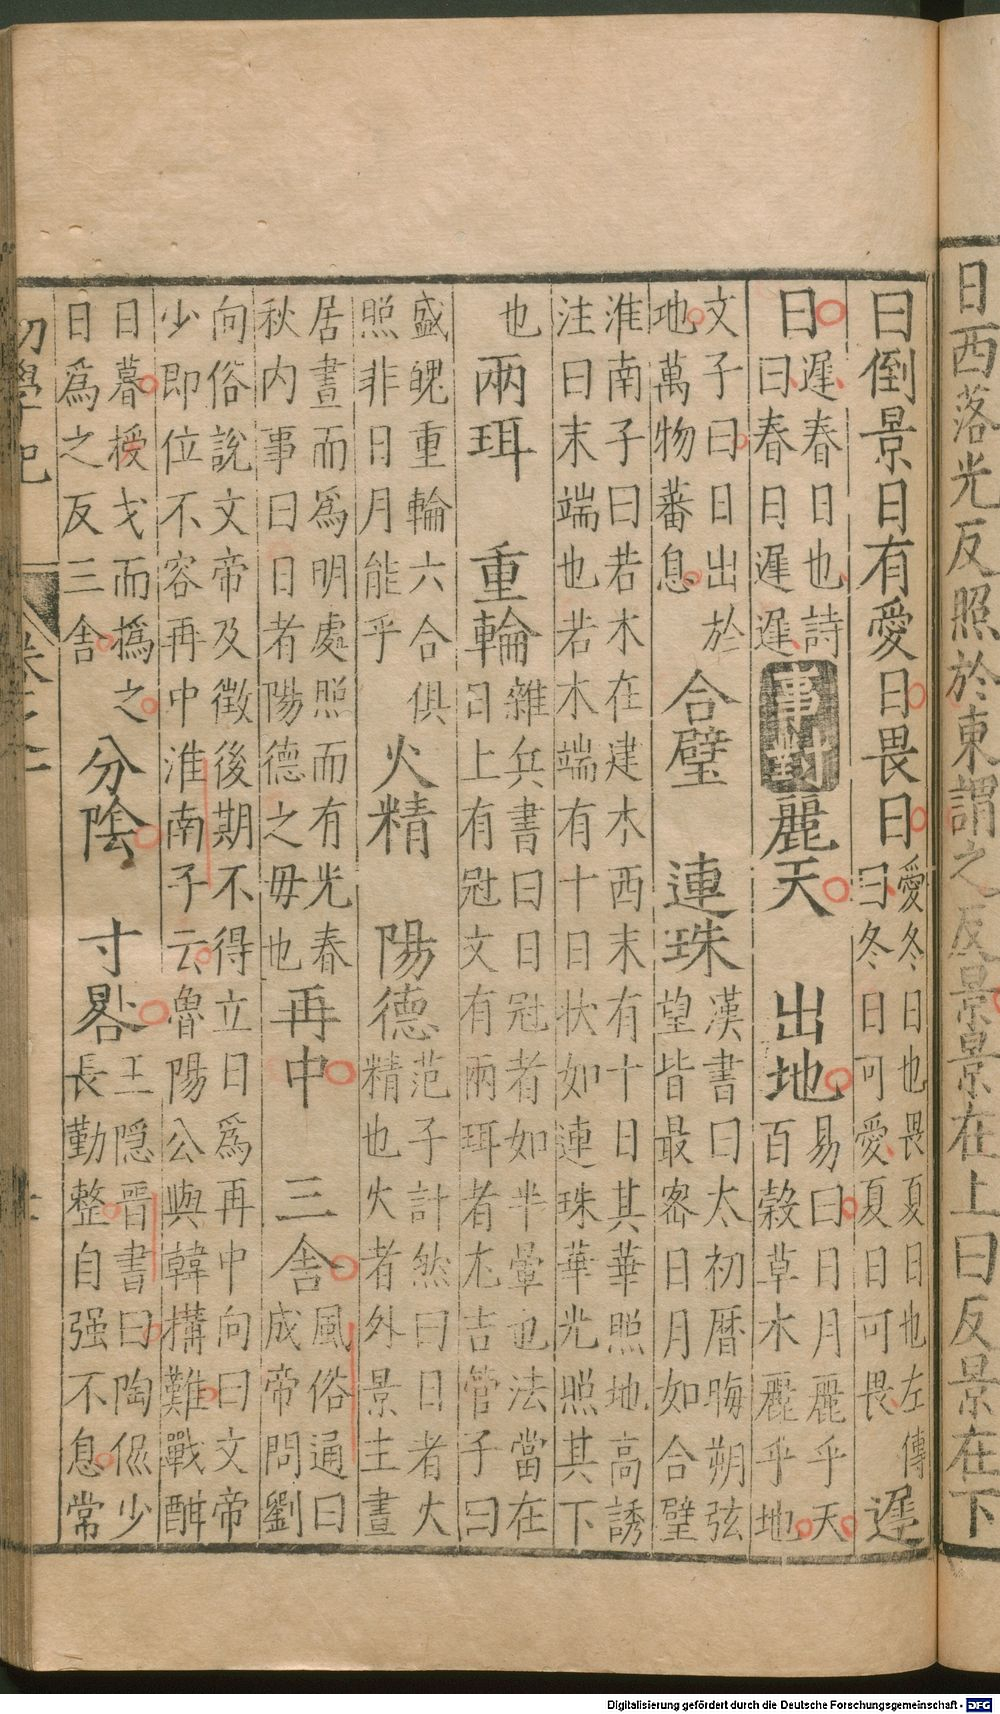 日西落光反照於東謂之反景景在上曰反景在下
曰倒景日有愛日畏日愛冬日也畏夏日也左傳
曰冬日可愛夏日可畏遲
日遲春日也詩
曰春日遲遲事對麗天 出地易曰日月麗乎天
百糓草木麗乎地
文子曰日出於
地萬物蕃息合璧 連珠漢書曰太初曆晦朔弦
望皆最密日月如合璧
淮南子曰若木在建木西末有十日其華照地高誘
注曰末端也若木端有十日狀如連珠華光照其下
也兩珥 重輪雜兵書曰日冠者如半暈也法當在
日上有冠文有兩珥者尤吉管子曰
盛魄重輪六合俱
照非日月能乎火精 陽德范子計然曰日者火
精也火者外景主晝
居晝而爲明處照而有光春
秋内事曰日者陽德之毋也再中 三舍風俗通曰
成帝問劉
向俗說文帝及徵後期不得立日爲再中向曰文帝
少即位不容再中淮南子云魯陽公與韓構難戰酣
日暮援戈而撝之
日爲之反三舍分陰 寸晷王隱晋書曰陶侃少
長勤整自强不息常
初學記
Digitalisierung gefördert durch die Deutsche Forschungsgemeinschaft - DFG